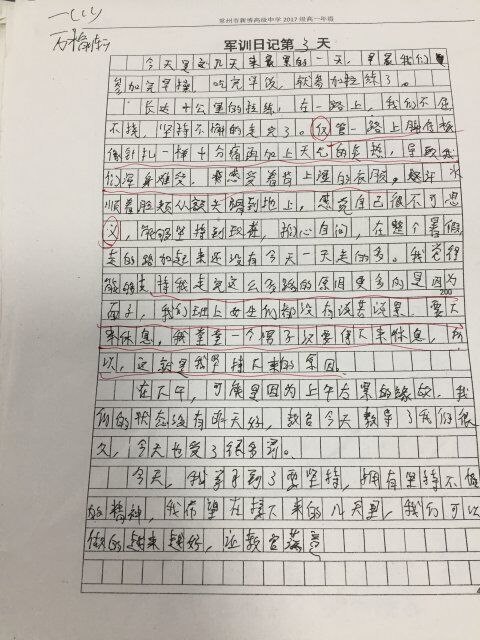 常州市新桥高级中学2017级高一年级
一(11)
军训日记第3天
今天是这几天来最累的一天，早晨我们
参加完早操，吃完早饭，就参加拉练了。
长达十公里的拉练，在一路上，我们不屈
不挠，坚持不懈的走完了。仅管一路上脚底板
像针扎一样十分痛再加上天气的炎热，导致我
们浑身难受，感受着背上湿的衣服，汗水
顺着脸颊从额头踊到地上，感觉自己很不可思
义，能够坚持到现在，扪心自问，在整个暑假
走的路加起来还没有今天一天走的多。我觉得
能够支持我走完这么多路的原因更多的是因为
200
面子，我们班上女生们都没有谈苦谈累，要下
来休息，我堂堂一个男子汉要停下来休息，所
以，这就是我坚持下来的原因。
在下午，可能是因为上午太累的缘故，我
们的状态没有昨天好，教官今天教导了我们很
久，今天也受了很多罚。
今天，我学习到了要坚持，拥有坚持不懈
的精神，我希望在接下来的几天里，我们可以
做的越来越好，让教官满意